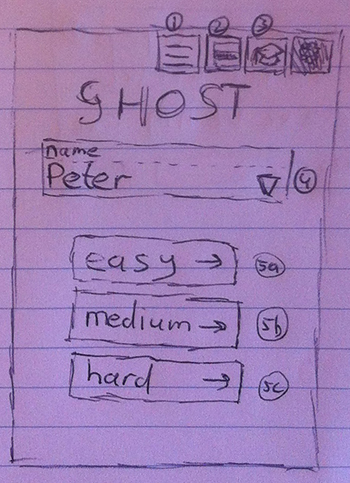 1 2 3
GHOST
name
Peter
4
easy → 5a
medium → 5b
hard → 5c